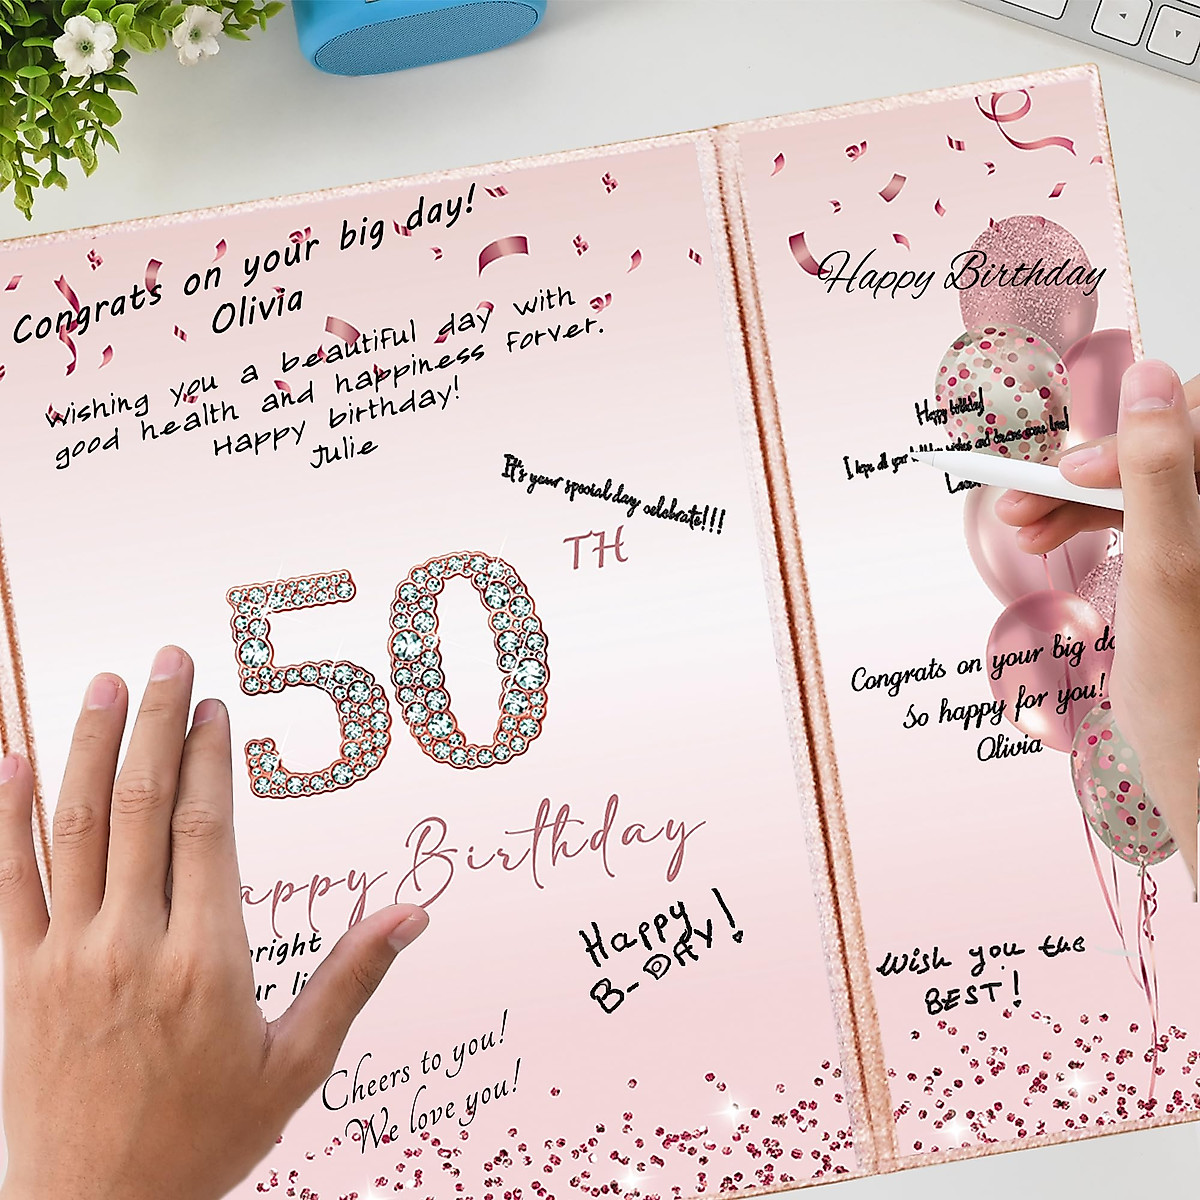 Congrats on your big day!
Olivia
Wishing you a beautiful day with
good health and happiness Forver.
Happy birthday!
Julie
It's your special day celebrate!!!
50
TH
appy Birthday
bright
ur li
Happy
B-DAY!
Cheers to you!
We love you!
Happy Birthday
Happy birthday!
I hope all your wishes and dreams come true!
Congrats on your big da
So happy for you!
Olivia
Wish you the
BEST!